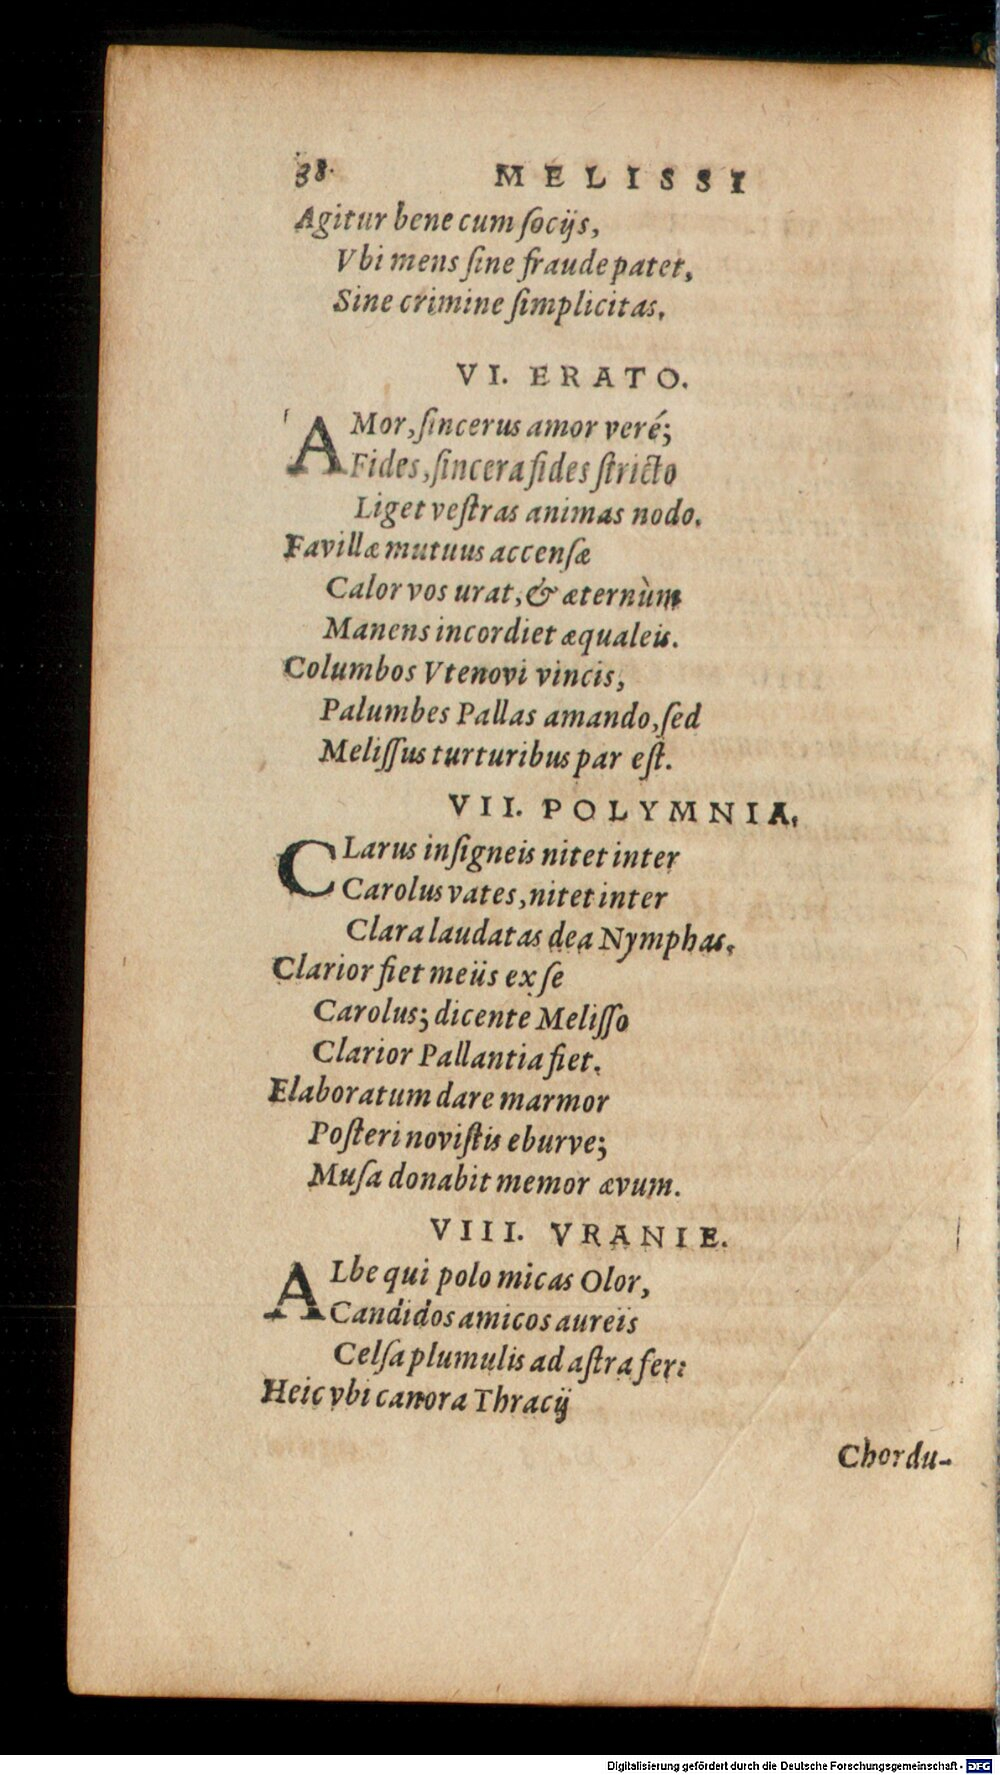 38. MELISSI
Agitur bene cum ſocijs,
Vbi mens ſine fraude patet,
Sine crimine ſimplicitas.
VI. ERATO.
AMor, ſincerus amor veré;
Fides, ſincera fides ſtricto
Liget veſtras animas nodo.
Favillæ mutuus accenſæ
Calor vos urat, & æternùm
Manens in cordiet æqualeis.
Columbos Vtenovi vincis,
Palumbes Pallas amando, ſed
Meliſſus turturibus par eſt.
VII. POLYMNIA.
CLarus inſigneis nitet inter
Carolus vates, nitet inter
Clara laudatas dea Nymphas.
Clarior fiet meüs ex ſe
Carolus; dicente Meliſſo
Clarior Pallantia fiet.
Elaboratum dare marmor
Poſteri noviſtis eburve;
Muſa donabit memor ævum.
VIII. VRANIE.
ALbe qui polo micas Olor,
Candidos amicos aureis
Celſa plumulis ad aſtra fer:
Heic vbi canora Thracij
Chordu-
Digitalisierung gefördert durch die Deutsche Forschungsgemeinschaft - DFG